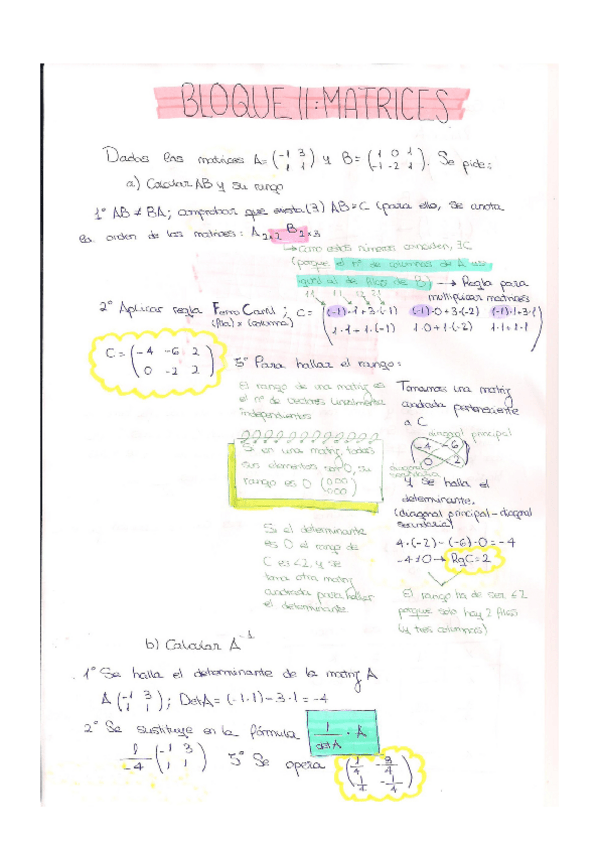 BLOQUE II: MATRICES
Dadas las matrices A=(-1 3 / 1 1) y B=(1 0 1 / -1 -2 1). Se pide:
a) Calcular AB y su rango
1º AB ≠ BA; comprobar que exista (∃) AB=C (para ello, se anota
el orden de las matrices: A2x2 B2x3
como estos números coinciden, ∃C
(porque el nº de columnas de A es
igual al de filas de B) → Regla para
multiplicar matrices
2º Aplicar regla Ferro Carril ; C=
(fila) x (columna)
(-1)·1+3·(-1) (-1)·0+3·(-2) (-1)·1+3·1
1·1+1·(-1) 1·0+1·(-2) 1·1+1·1
C=(-4 -6 2
0 -2 2)
3º Para hallar el rango:
El rango de una matriz es
el nº de vectores linealmente
independientes
Si en una matriz todos
sus elementos son 0, su
rango es 0 (000
000)
Si el determinante
es 0 el rango de
C es <2, y se
toma otra matriz
cuadrada para hallar
el determinante
Tomamos una matriz
cuadrada perteneciente
a C
diagonal principal
(-4 -6
0 -2)
diagonal
secundaria
y se halla el
determinante.
(diagonal principal - diagonal
secundaria)
4·(-2)-(-6)·0=-4
-4≠0 → RgC=2
El rango ha de ser ≤2
porque solo hay 2 filas
(y tres columnas)
b) Calcular A⁻¹
1º Se halla el determinante de la matriz A
A(-1 3 / 1 1); DetA= (-1·1)-3·1=-4
2º Se sustituye en la fórmula 1/detA · A
1/-4 (-1 3 / 1 1) 3º Se opera (1/4 -3/4 / 1/4 -1/4)